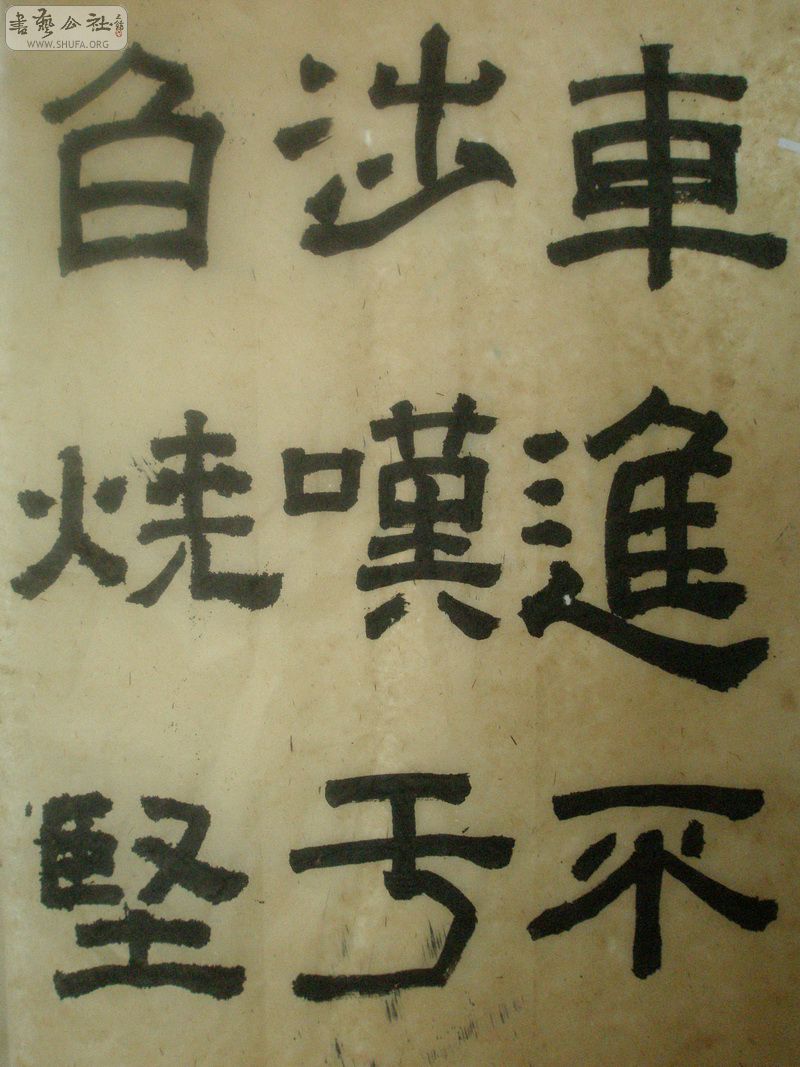 書藝公社
WWW.SHUFA.ORG
車進不
涉嘆亏
燒堅